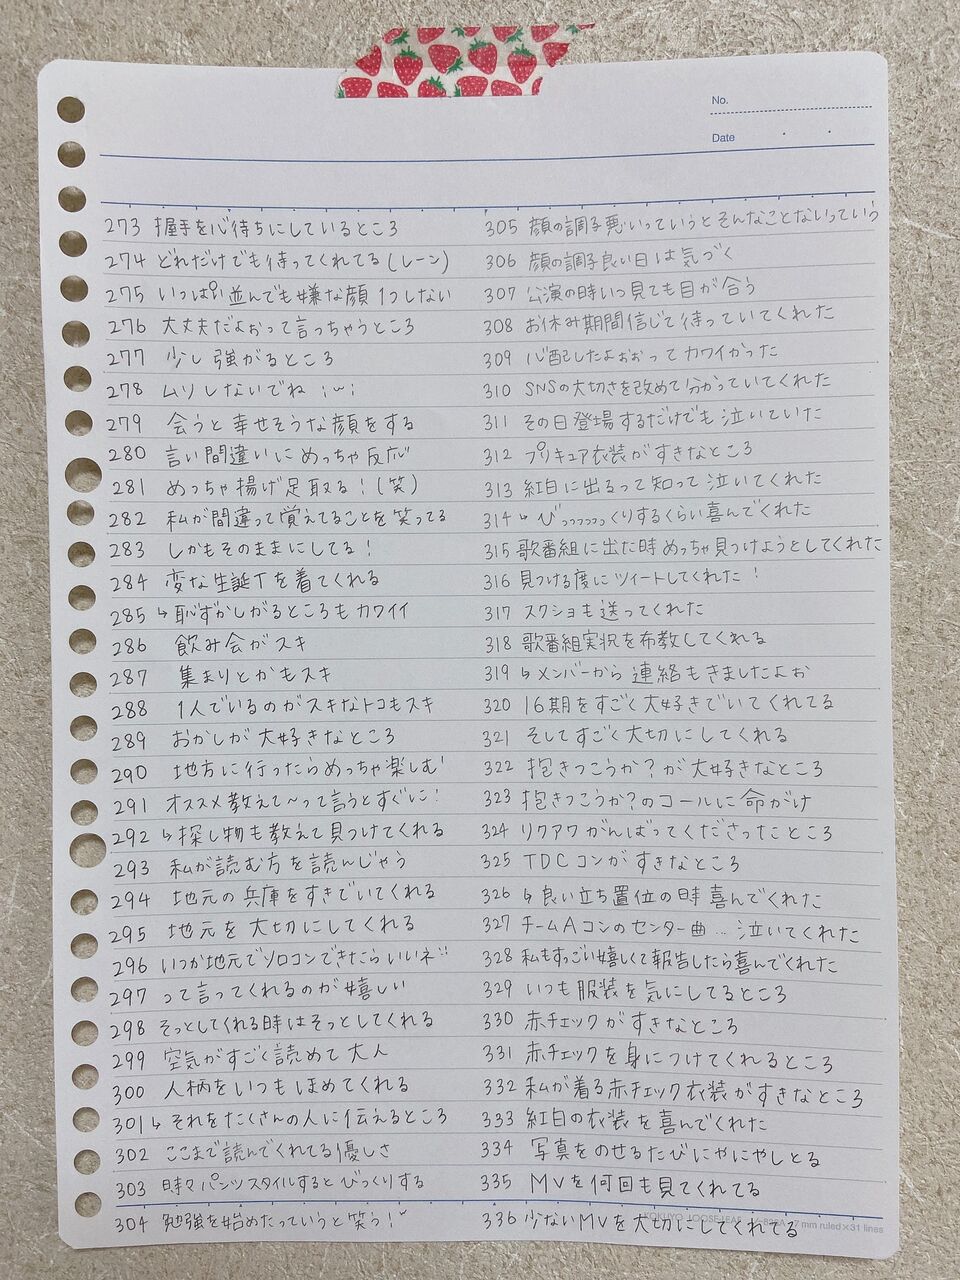 No.
Date
273 握手を心待ちにしているところ
274 どれだけでも待ってくれてる(レーン)
275 いっぱい並んでも嫌な顔1つしない
276 大丈夫だよぉって言っちゃうところ
277 少し強がるところ
278 ムリしないでね
279 会うと幸せそうな顔をする
280 言い間違いにめっちゃ反応
281 めっちゃ揚げ足取る!(笑)
282 私が間違って覚えてることを笑ってる
283 しかもそのままにしてる!
284 変な生誕Tを着てくれる
285 ↳恥ずかしがるところもカワイイ
286 飲み会がスキ
287 集まりとかもスキ
288 1人でいるのがスキなトコもスキ
289 おかしが大好きなところ
290 地方に行ったらめっちゃ楽しむ!
291 オススメ教えて〜って言うとすぐに!
292 ↳探し物も教えて見つけてくれる
293 私が読む方を読んじゃう
294 地元の兵庫をすきでいてくれる
295 地元を大切にしてくれる
296 いつか地元でソロコンできたらいいネ
297 って言ってくれるのが嬉しい
298 そっとしてくれる時はそっとしてくれる
299 空気がすごく読めて大人
300 人柄をいつもほめてくれる
301 ↳それをたくさんの人に伝えるところ
302 ここまで読んでくれてる優しさ
303 時々パンツスタイルするとびっくりする
304 勉強を始めたっていうと笑う!
305 顔の調子悪いっていうとそんなことないっていう
306 顔の調子良い日は気づく
307 公演の時いつ見ても目が合う
308 お休み期間信じて待っていてくれた
309 心配したよぉぉってカワイかった
310 SNSの大切さを改めて分かっていてくれた
311 その日登場するだけでも泣いていた
312 プリキュア衣装がすきなところ
313 紅白に出るって知って泣いてくれた
314 ↳びっっっっっっくりするくらい喜んでくれた
315 歌番組に出た時めっちゃ見つけようとしてくれた
316 見つける度にツイートしてくれた!
317 スクショも送ってくれた
318 歌番組実況を布教してくれる
319 ↳メンバーから連絡もきましたよぉ
320 16期をすごく大好きでいてくれてる
321 そしてすごく大切にしてくれる
322 抱きつこうか?が大好きなところ
323 抱きつこうか?のコールに命がけ
324 リクアワがんばってくださったところ
325 TDCコンがすきなところ
326 ↳良い立ち置位の時喜んでくれた
327 チームAコンのセンター曲…泣いてくれた
328 私もすっごい嬉しくて報告したら喜んでくれた
329 いつも服装を気にしてるところ
330 赤チェックがすきなところ
331 赤チェックを身につけてくれるところ
332 私が着る赤チェック衣装がすきなところ
333 紅白の衣装を喜んでくれた
334 写真をのせるたびにやにやしとる
335 MVを何回も見てくれてる
336 少ないMVを大切にしてくれてる
KOKUYO LOOSE-LEAF 7 mm ruled×31 lines